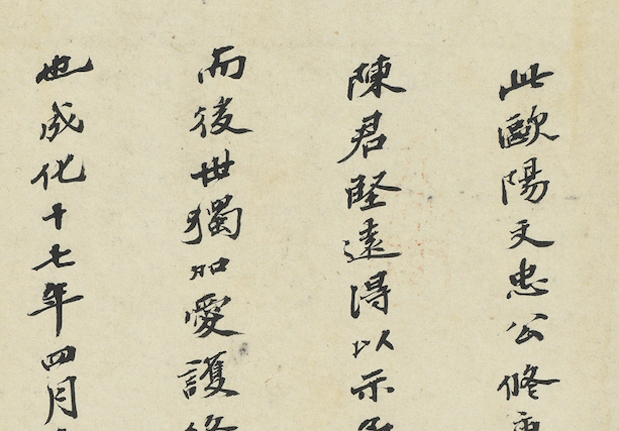 此歐陽文忠公修
陳君堅遠得以示
而後世獨加愛護
也成化十七年四月